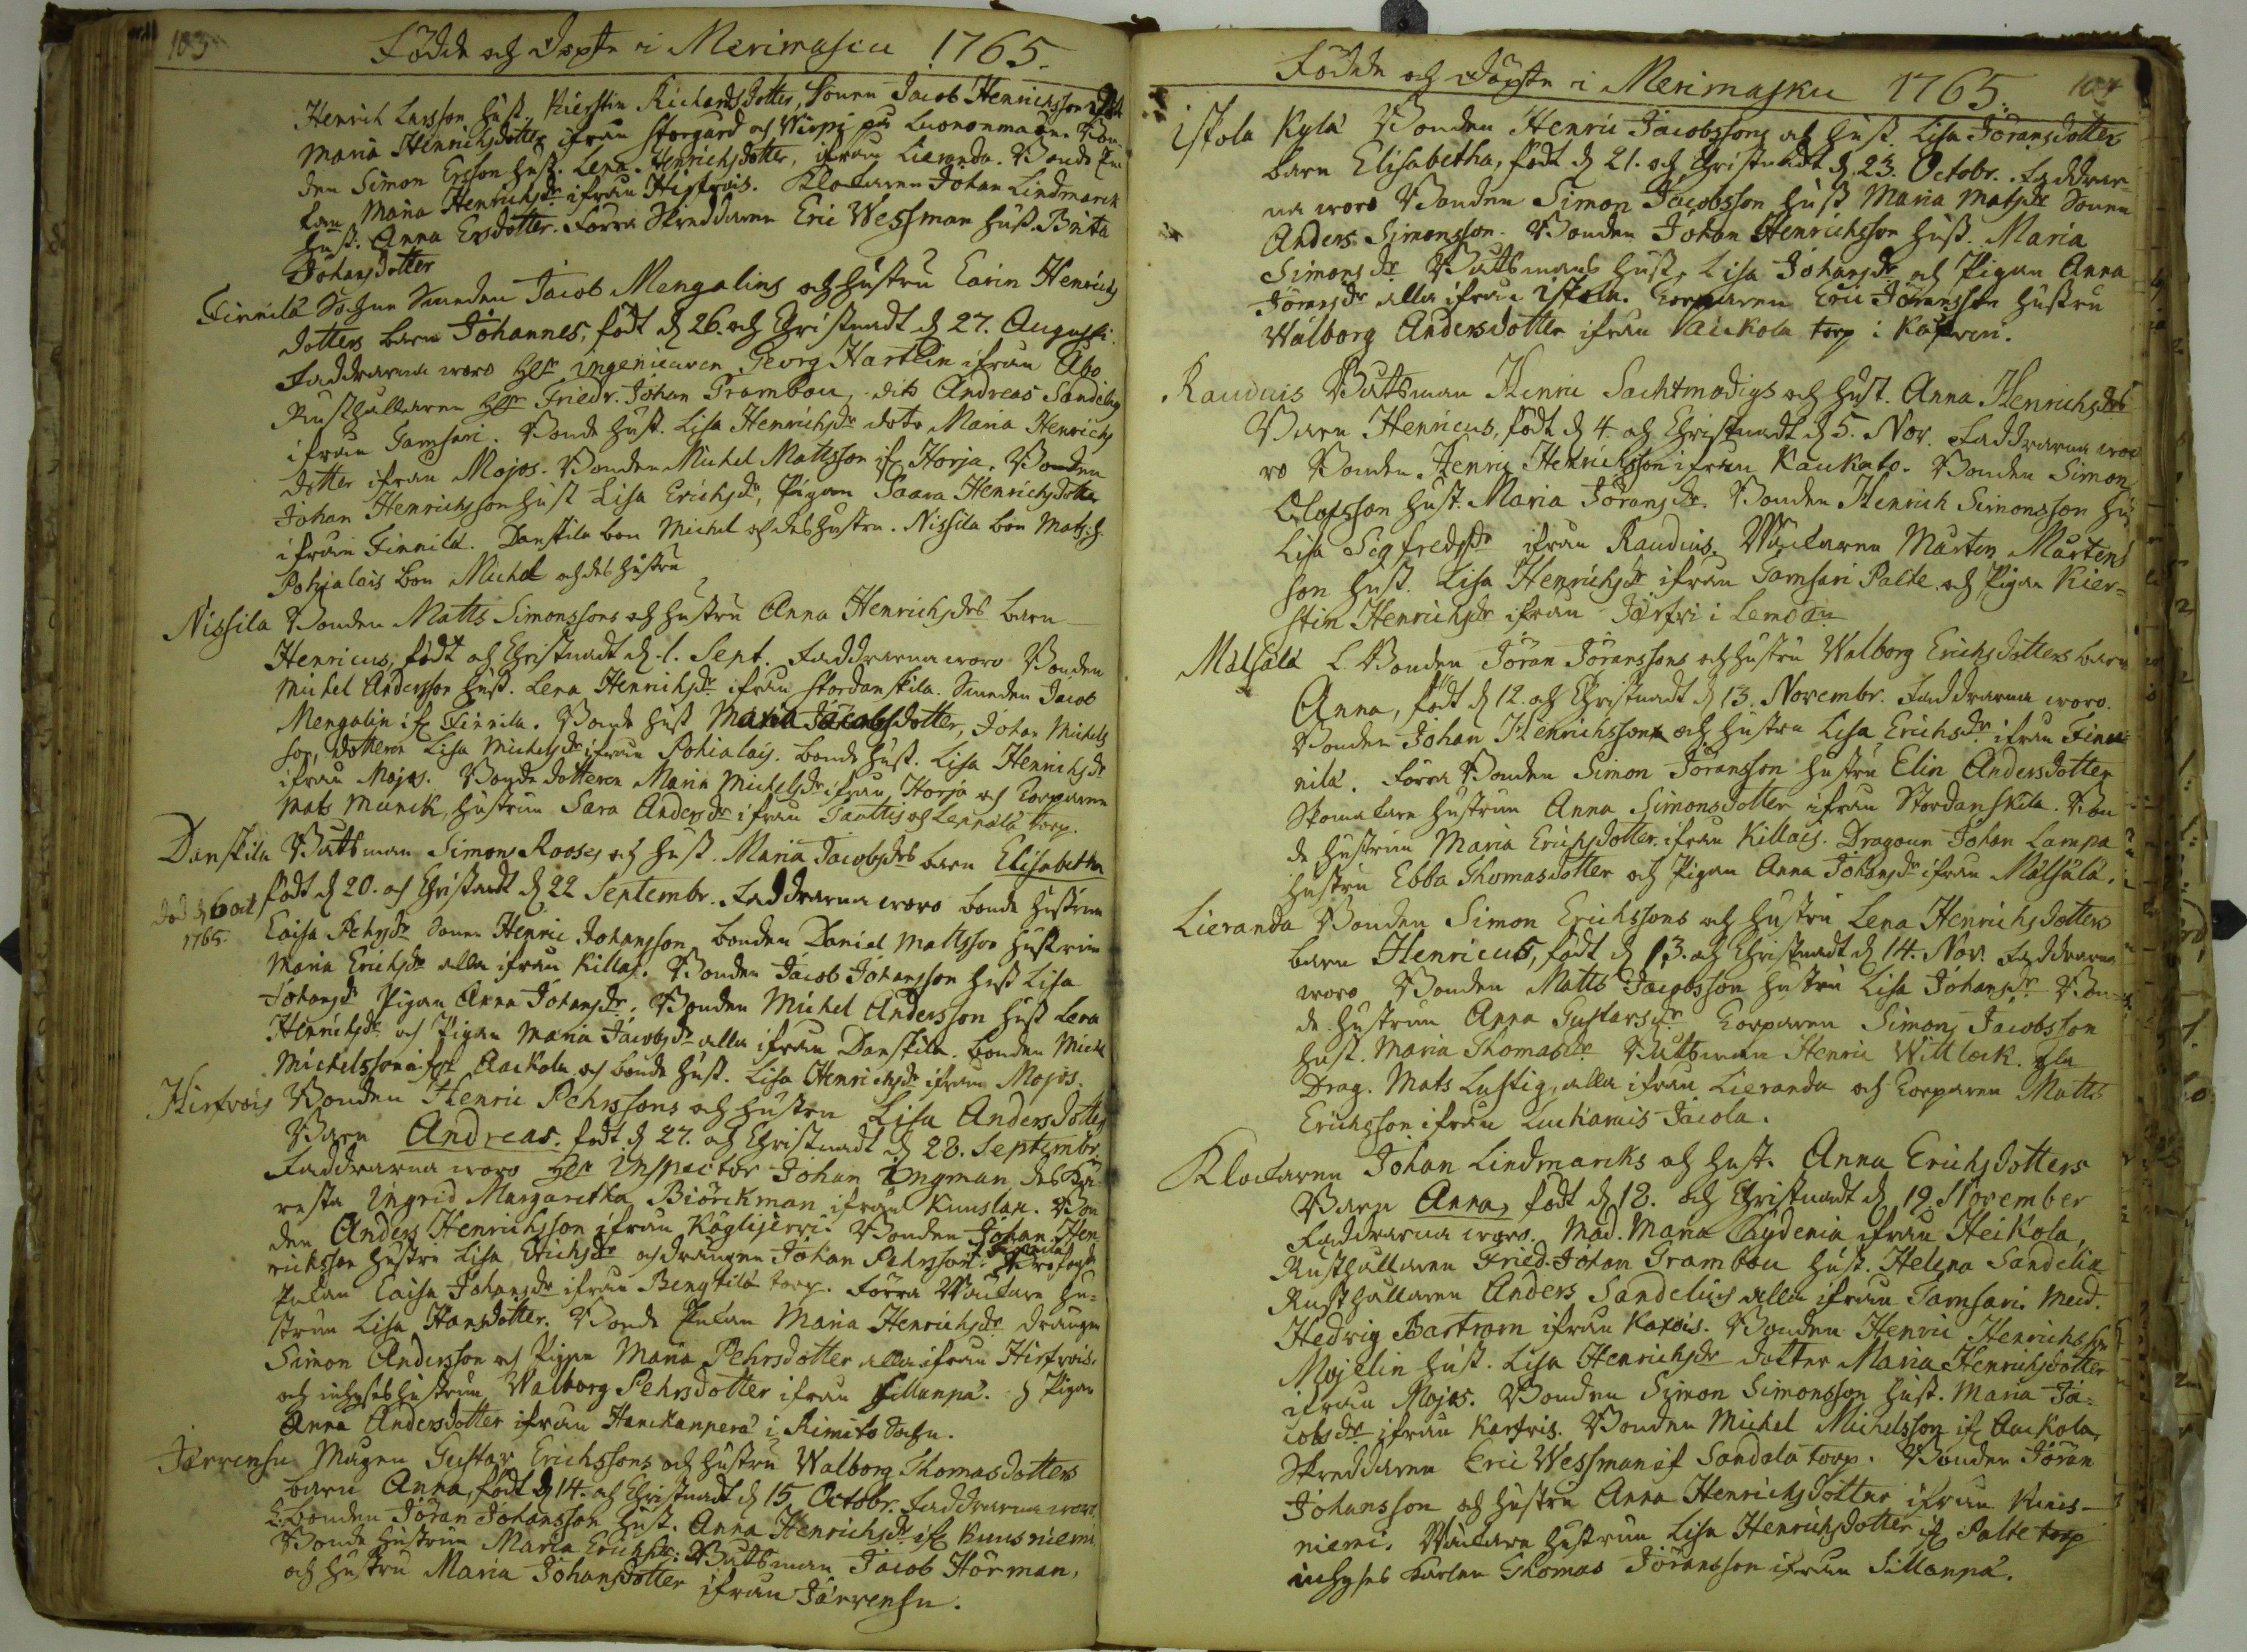 103
Födde och Döpte i Merimasku 1765.
Henrich Larsson hust. Kierstin Richardsdotter, Sonen Jacob Henrichsson
Maria Henrichsdotter ifrån Storgård och Wirpi på Luononmaa. Bon-
den Simon Ersson hust. Lena Henrichsdotter, ifrån Lieranda. Bonde
Maria Henrichsdr ifrån Hirfvois. Klockaren Johan Lindmarck
hust. Anna Ersdotter. Förra Skreddaren Eric Wessman hust. Brita
Johansdotter
Finnilä Sochne Smeden Jacob Mengalins och hustru Carin Henrichs
dotters barn Johannes, födt d 26. och Christnadt d 27. Augusti.
Faddrarna woro Herr ingenieuren Georg Hartlin ifrån Åbo
Rusthållaren Herr Friedr. Johan Grambou, dito Andreas Sandelius
ifrån Samsari. Bonde hust. Lisa Henrichsdr dotr Maria Henrichs
dotter ifrån Mojos. Bonden Michel Mattsson ifr Horja. Bonden
Johan Henrichsson hust Lisa Erichsdr, Pigan Saara Henrichsdotter
ifrån Finnilä. Danskila bon Michel och des hustru. Nissila bon Mats.
Pohjalais bon Michel och des hustru
Nissila Bonden Matts Simonssons och hustru Anna Henrichsdrs barn
Henricus, födt och Christnadt d 1. Sept. Faddrarna woro Bonden
Michel Andersson hust. Lena Henrichsdr ifrån Stordanskila. Smeden Jacob
Mengalin ifr Finnila. Bonde hust Maria Jacobsdotter, Johan Michels
son, dotteren Lisa Michelsdr ifrån Pohialais. bonde hust. Lisa Henrichsdr
ifrån Mojos. Bonde dotteren Maria Michelsdr ifrån Horja och Torparen
Mats Munck, hustrun Sara Andersdr ifrån Tanttis och Leppälä torp.
Danskila Båtsman Simon Rooses och hust. Maria Jacobsdrs barn Elisabetha
död d 6 oct 1765.
födt d 20. och Christnadt d 22 Septembr. Faddrarna woro bonde hustrun
Caisa Pehrsdr Sonen Henric Johansson, bonden Daniel Mattsson hustrun
Maria Erichsdr alla ifrån Killais. Bonden Jacob Johansson hust Lisa
Johansdr Pigan Anna Johansdr. Bonden Michel Andersson hust Lena
Henrichsdr och Pigan Maria Jacobsdr alla ifrån Danskila. bonden Michel
Michelsson ifr Aackola och bonde hust. Lisa Henrichsdr ifrån Mojos.
Hirfvois Bonden Henric Pehrssons och hustru Lisa Andersdotters
Barn Andreas. födt d 27. och Christnadt d 28. Septembr.
Faddrarna woro Herr inspector Johan Ingman, des Kä-
resta Ingrid Margaretha Biörckman ifrån Kuuslax. Bon
den Anders Henrichsson ifrån Köylijerri. Bonden Johan Hen
richsson hustru Lisa Erichsdr och drängen Johan Pehrsson
Caisa Johansdr ifrån Bengtilä torp. Förra Wäktare hu-
strun Lisa Hansdotter. Bonde Enkan Maria Henrichsdr drängen
Simon Andersson och Pigan Maria Pehrsdotter alla ifrån Hirfvois.
och inhyses hustrun Walborg Pehrsdotter ifrån Sillanpä. och Pigan
Anna Andersdotter ifrån Hanckanperä i Rimito Sochn.
Järvensu Mågen Gustav Erichssons och hustru Walborg Thomasdotters
barn Anna, födt d 14. och Christnadt d 15 Octobr. Faddrarna woro
L. bonden Jöran Johansson hust. Anna Henrichsdr ifr Kuusniemi
Bonde hustrun Maria Erichsdr. Båtsman Jacob Hörman,
och hustru Maria Johansdotter ifrån Järvensu.
104
Födde och Döpte i Merimasku 1765.
Iskola Kylä Bonden Henric Jacobssons och hust. Lisa Jöransdotters
barn Elisabetha, födt d 21. och Christnadt d 23. Octobr. Faddrar-
na woro Bonden Simon Jacobsson hust Maria Matsdr Sonen
Anders Simonsson. Bonden Johan Henrichsson hust. Maria
Simonsdr Båtsmans hust. Lisa Johansdr och Pigan Anna
Jöransdr alla ifrån Iskola. Torparen Eric Jöransson hustru
Walborg Andersdotter ifrån Vaickola torp i Kaxvois.
Rauduis Båtsman Henric Sachtmodigs och hust. Anna Henrichsdrs
Barn Henricus, födt d 4. och Christnadt d 5. Nov. Faddrarna wo-
ro Bonden Henric Henrichsson ifrån Kaukato. Bonden Simon
Olofsson hust. Maria Jöransdr. Bonden Henrich Simonsson hu
Lisa Sigfredsdr ifrån Rauduis. Wäktaren Mårten Mårtens
son hust. Lisa Henrichsdr ifrån Samsari Palte, och Pigan Kier-
stin Henrichsdr ifrån Järfvi i Lemo
Mälsälä L. Bonden Jöran Jöranssons och hustru Walborg Erichsdotters barn
Anna, födt d 12. och Christnadt d 13. Novembr. Faddrarna woro.
Bonden Johan Henrichsson och hustru Lisa Erichsdr ifrån Fin-
nilä. Förra Bonden Simon Jöransson hustru Elin Andersdotter
Skomakare hustrun Anna Simonsdotter ifrån Stordanskila. Bon
de hustrun Maria Erichsdotter ifrån Killais. Dragoun Johan Lampa
hustru Ebba Thomasdotter och Pigan Anna Johansdr ifrån Mälsälä.
Lieranda Bonden Simon Erichssons och hustru Lena Henrichsdotters
barn Henricus, födt d 13. och Christnadt d 14. Nov. Faddrarna
woro Bonden Matts Jacobsson hustru Lisa Johansdr Bon-
de hustrun Anna Gustavsdr Torparen Simon Jacobsson
hust. Maria Thomasdr Båtsman Henric Wittlock.
Drag. Mats Lustig, alla ifrån Lieranda och Torparen Matts
Erichsson ifrån Luckarais Jacola.
Klockaren Johan Lindmarcks och hust. Anna Erichsdotters
Barn Anna, födt d 18. och Christnadt d 19 November
Faddrarna woro. Mad. Maria Chydenia ifrån Heikola,
Rusthållaren Fried. Johan Grambou hust. Helena Sandelia
Rusthållaren Anders Sandelius alla ifrån Samsari. Mad.
Hedvig Bartram ifrån Kaxois. Bonden Henric Henrichsson
Mojelin hust. Lisa Henrichsdr dotter Maria Henrichsdotter
ifrån Mojos. Bonden Simon Simonsson hust. Maria Ja-
cobsdr ifrån Karfvis. Bonden Michel Michelsson ifr Aackola,
Skreddaren Eric Wessman af Sandala torp. Bonden Jöran
Johansson och hustru Anna Henrichsdotter ifrån Kuus-
niemi. Wäktare hustrun Lisa Henrichsdotter ifr Palte torp
inhyses karlen Thomas Jöransson ifrån Sillanpä.